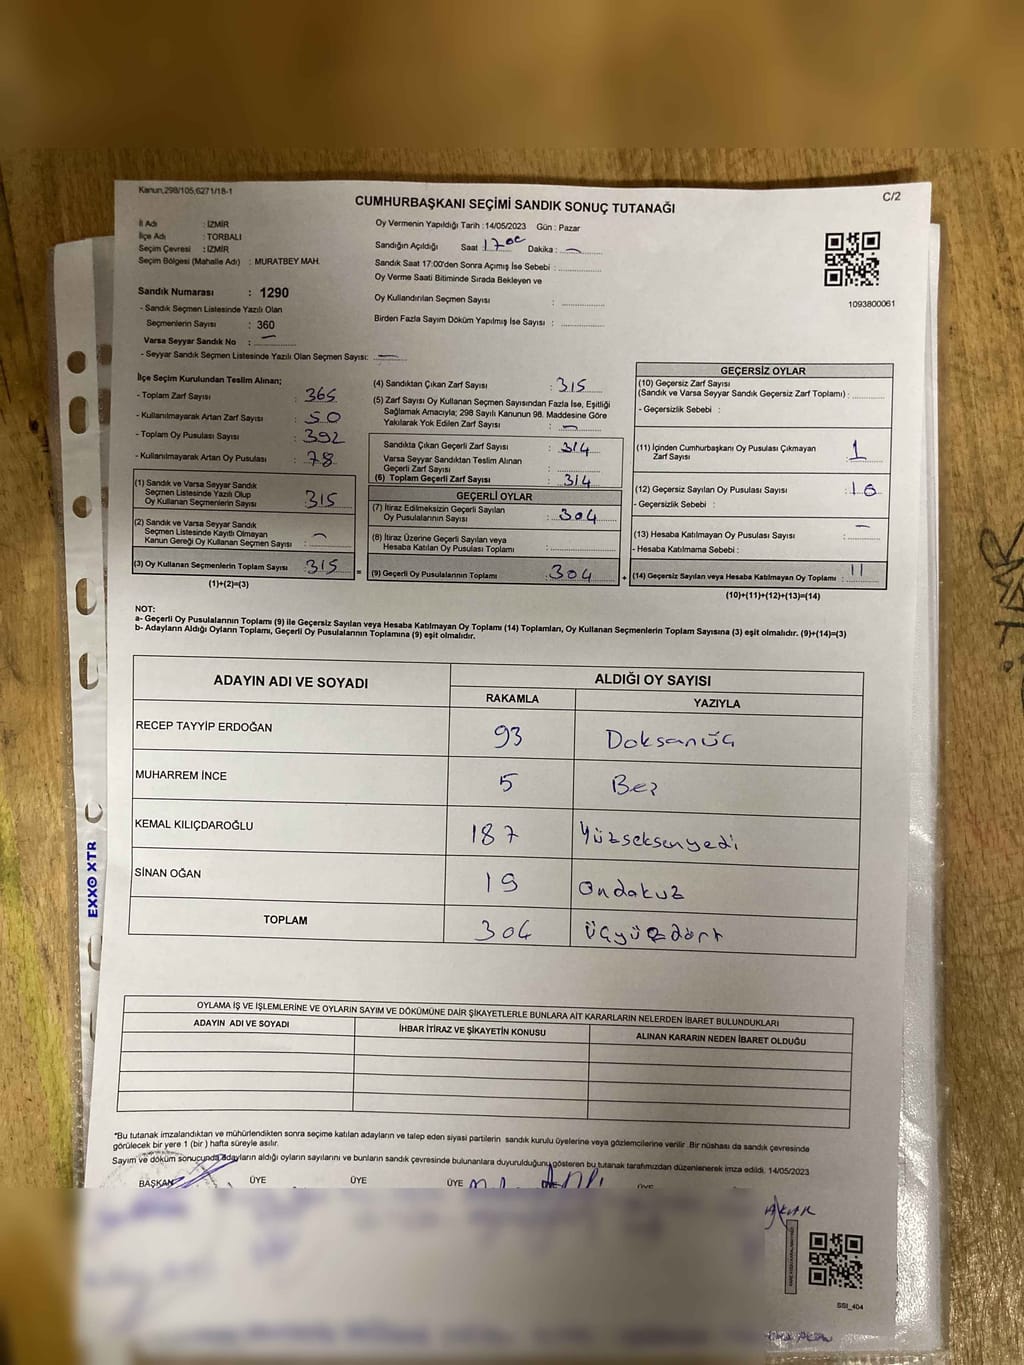 Kanun,298/105,6271/18-1
C/2
CUMHURBAŞKANI SEÇİMİ SANDIK SONUÇ TUTANAĞI
İl Adı : İZMİR
İlçe Adı : TORBALI
Seçim Çevresi : İZMİR
Seçim Bölgesi (Mahalle Adı) : MURATBEY MAH.
Sandık Numarası : 1290
- Sandık Seçmen Listesinde Yazılı Olan
Seçmenlerin Sayısı : 360
Varsa Seyyar Sandık No : —
- Seyyar Sandık Seçmen Listesinde Yazılı Olan Seçmen Sayısı: —
Oy Vermenin Yapıldığı Tarih :14/05/2023 Gün : Pazar
Sandığın Açıldığı Saat 17 00 Dakika : —
Sandık Saat 17:00'den Sonra Açımış İse Sebebi :
Oy Verme Saati Bitiminde Sırada Bekleyen ve
Oy Kullandırılan Seçmen Sayısı :
Birden Fazla Sayım Döküm Yapılmış İse Sayısı :
1093800061
İlçe Seçim Kurulundan Teslim Alınan;
- Toplam Zarf Sayısı : 365
- Kullanılmayarak Artan Zarf Sayısı : 50
- Toplam Oy Pusulası Sayısı : 392
- Kullanılmayarak Artan Oy Pusulası : 78
(1) Sandık ve Varsa Seyyar Sandık
Seçmen Listesinde Yazılı Olup
Oy Kullanan Seçmenlerin Sayısı : 315
(2) Sandık ve Varsa Seyyar Sandık
Seçmen Listesinde Kayıtlı Olmayan
Kanun Gereği Oy Kullanan Seçmen Sayısı : —
(3) Oy Kullanan Seçmenlerin Toplam Sayısı : 315
(1)+(2)=(3)
(4) Sandıktan Çıkan Zarf Sayısı : 315
(5) Zarf Sayısı Oy Kullanan Seçmen Sayısından Fazla İse, Eşitliği
Sağlamak Amacıyla; 298 Sayılı Kanunun 98. Maddesine Göre
Yakılarak Yok Edilen Zarf Sayısı : —
Sandıkta Çıkan Geçerli Zarf Sayısı : 314
Varsa Seyyar Sandıktan Teslim Alınan
Geçerli Zarf Sayısı :
(6) Toplam Geçerli Zarf Sayısı : 314
GEÇERLİ OYLAR
(7) İtiraz Edilmeksizin Geçerli Sayılan
Oy Pusulalarının Sayısı : 304
(8) İtiraz Üzerine Geçerli Sayılan veya
Hesaba Katılan Oy Pusulası Toplamı :
= (9) Geçerli Oy Pusulalarının Toplamı : 304
GEÇERSİZ OYLAR
(10) Geçersiz Zarf Sayısı
(Sandık ve Varsa Seyyar Sandık Geçersiz Zarf Toplamı) :
- Geçersizlik Sebebi :
(11) İçinden Cumhurbaşkanı Oy Pusulası Çıkmayan
Zarf Sayısı : 1
(12) Geçersiz Sayılan Oy Pusulası Sayısı : 10
- Geçersizlik Sebebi :
(13) Hesaba Katılmayan Oy Pusulası Sayısı : —
- Hesaba Katılmama Sebebi :
+ (14) Geçersiz Sayılan veya Hesaba Katılmayan Oy Toplamı : 11
(10)+(11)+(12)+(13)=(14)
NOT:
a- Geçerli Oy Pusulalarının Toplamı (9) ile Geçersiz Sayılan veya Hesaba Katılmayan Oy Toplamı (14) Toplamları, Oy Kullanan Seçmenlerin Toplam Sayısına (3) eşit olmalıdır. (9)+(14)=(3)
b- Adayların Aldığı Oyların Toplamı, Geçerli Oy Pusulalarının Toplamına (9) eşit olmalıdır.
ADAYIN ADI VE SOYADI ALDIĞI OY SAYISI
RAKAMLA YAZIYLA
RECEP TAYYİP ERDOĞAN 93 Doksanüç
MUHARREM İNCE 5 Beş
KEMAL KILIÇDAROĞLU 187 Yüzseksenyedi
SİNAN OĞAN 19 Ondokuz
TOPLAM 304 Üçyüzdört
OYLAMA İŞ VE İŞLEMLERİNE VE OYLARIN SAYIM VE DÖKÜMÜNE DAİR ŞİKAYETLERLE BUNLARA AİT KARARLARIN NELERDEN İBARET BULUNDUKLARI
ADAYIN ADI VE SOYADI İHBAR İTİRAZ VE ŞİKAYETİN KONUSU ALINAN KARARIN NEDEN İBARET OLDUĞU
*Bu tutanak imzalandıktan ve mühürlendikten sonra seçime katılan adayların ve talep eden siyasi partilerin sandık kurulu üyelerine veya gözlemcilerine verilir. Bir nüshası da sandık çevresinde
görülecek bir yere 1 (bir ) hafta süreyle asılır.
Sayım ve döküm sonucunda adayların aldığı oyların sayılarını ve bunların sandık çevresinde bulunanlara duyurulduğunu gösteren bu tutanak tarafımızdan düzenlenerek imza edildi. 14/05/2023
BAŞKAN ÜYE ÜYE ÜYE
SSI_404
EXXO XTR